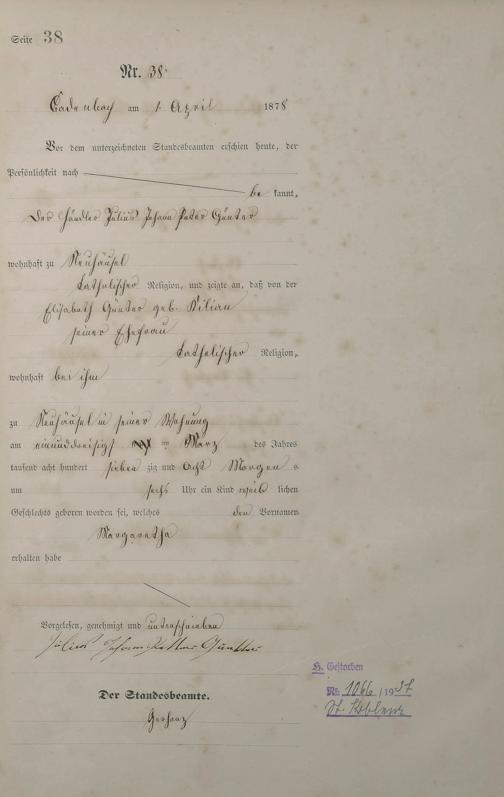 Seite 38
Nr. 38.
Cadenbach am 1. April 1878
Vor dem unterzeichneten Standesbeamten erschien heute, der
Persönlichkeit nach
be kannt,
der Händler Julius Johann Peter Günter
wohnhaft zu Neuhäusel
katholischer Religion, und zeigte an, daß von der
Elisabeth Günter geb. Kilian
seiner Ehefrau
katholischer Religion,
wohnhaft bei ihm
zu Neuhäusel in seiner Wohnung
am einunddreisigst im März des Jahres
tausend acht hundert sieben zig und acht Morgen s
um sechs Uhr ein Kind weib lichen
Geschlechts geboren worden sei, welches den Vornamen
Margaretha
erhalten habe
Vorgelesen, genehmigt und unterschrieben
Julius Johann Günther
Der Standesbeamte.
H. Gestorben
Nr. 1066/1937
St. Koblenz